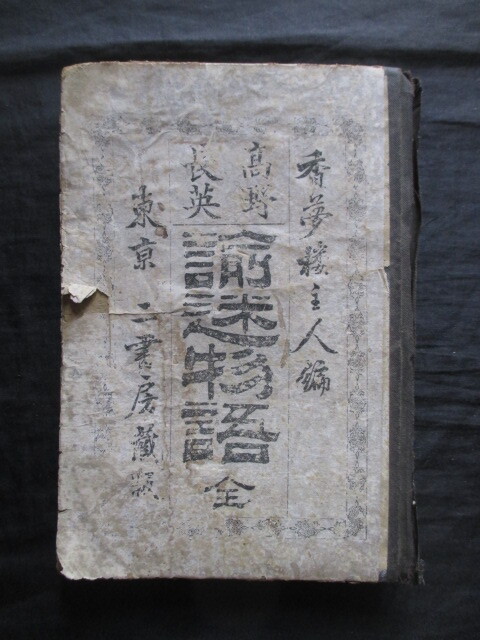 香夢楼主人編
高野
長英
諭迷物語
全
東京 二書房蔵版